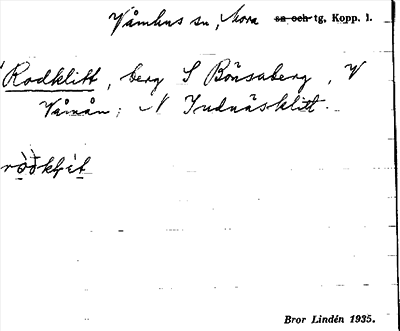 Våmhus sn, Mora sn och tg, Kopp. l.
Rodklitt, berg S Bönsaberg, V
Våmån; N Indnäsklitt.
Bror Lindén 1935.